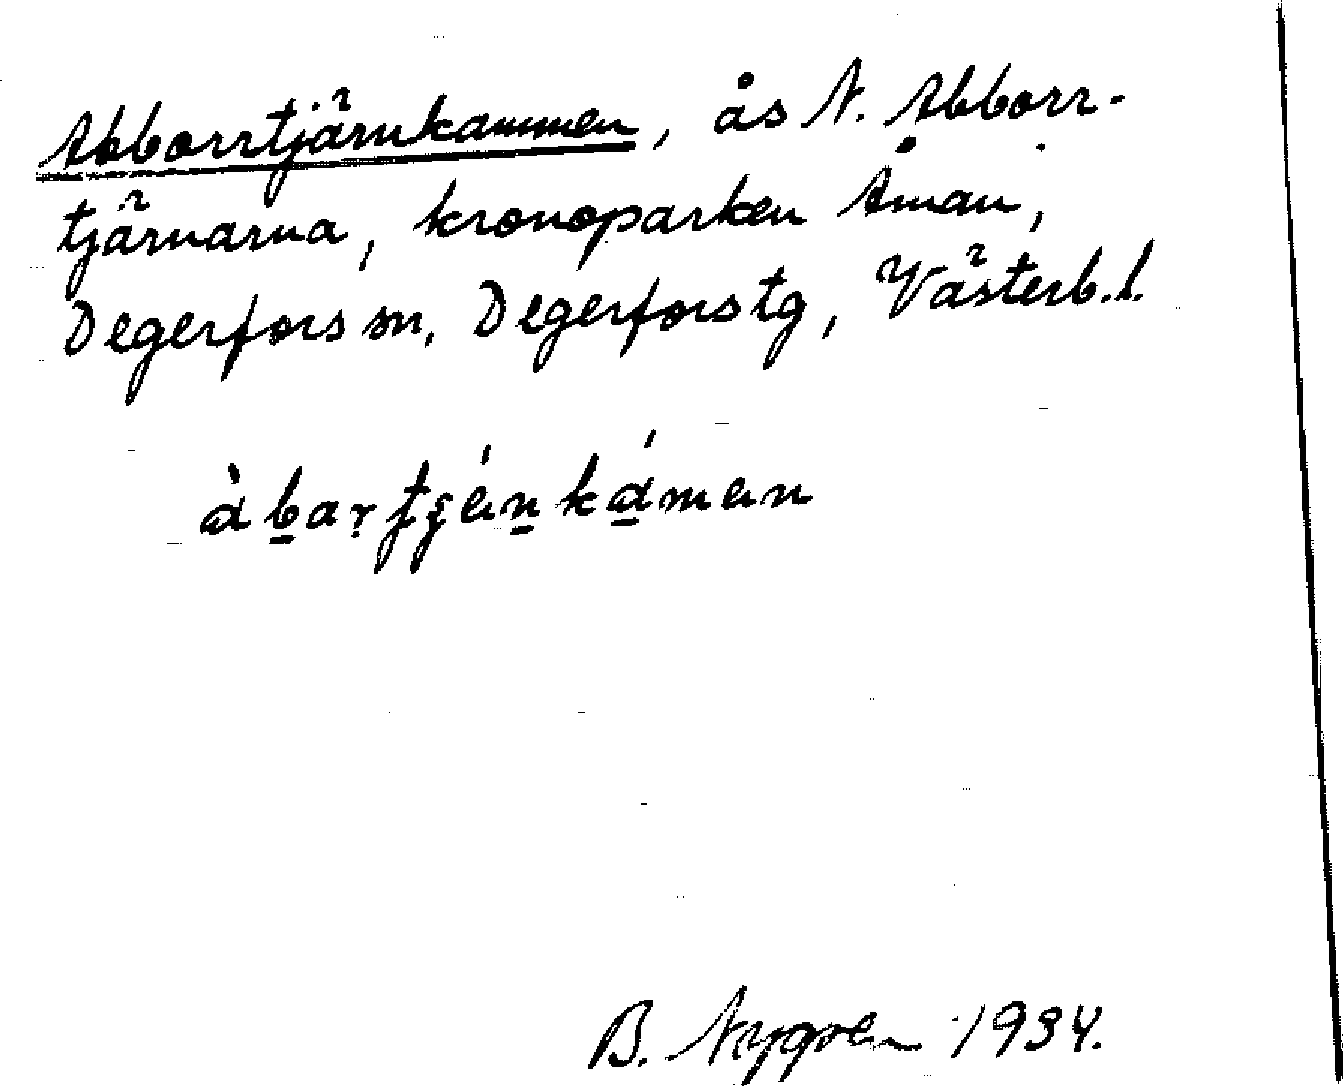 Abborrtjärnkammen, ås N. Abborr-
tjärnarna, kronoparken Åman,
Degerfors sn, Degerfors tg, Västerb. l.
B. Nygren 1934.